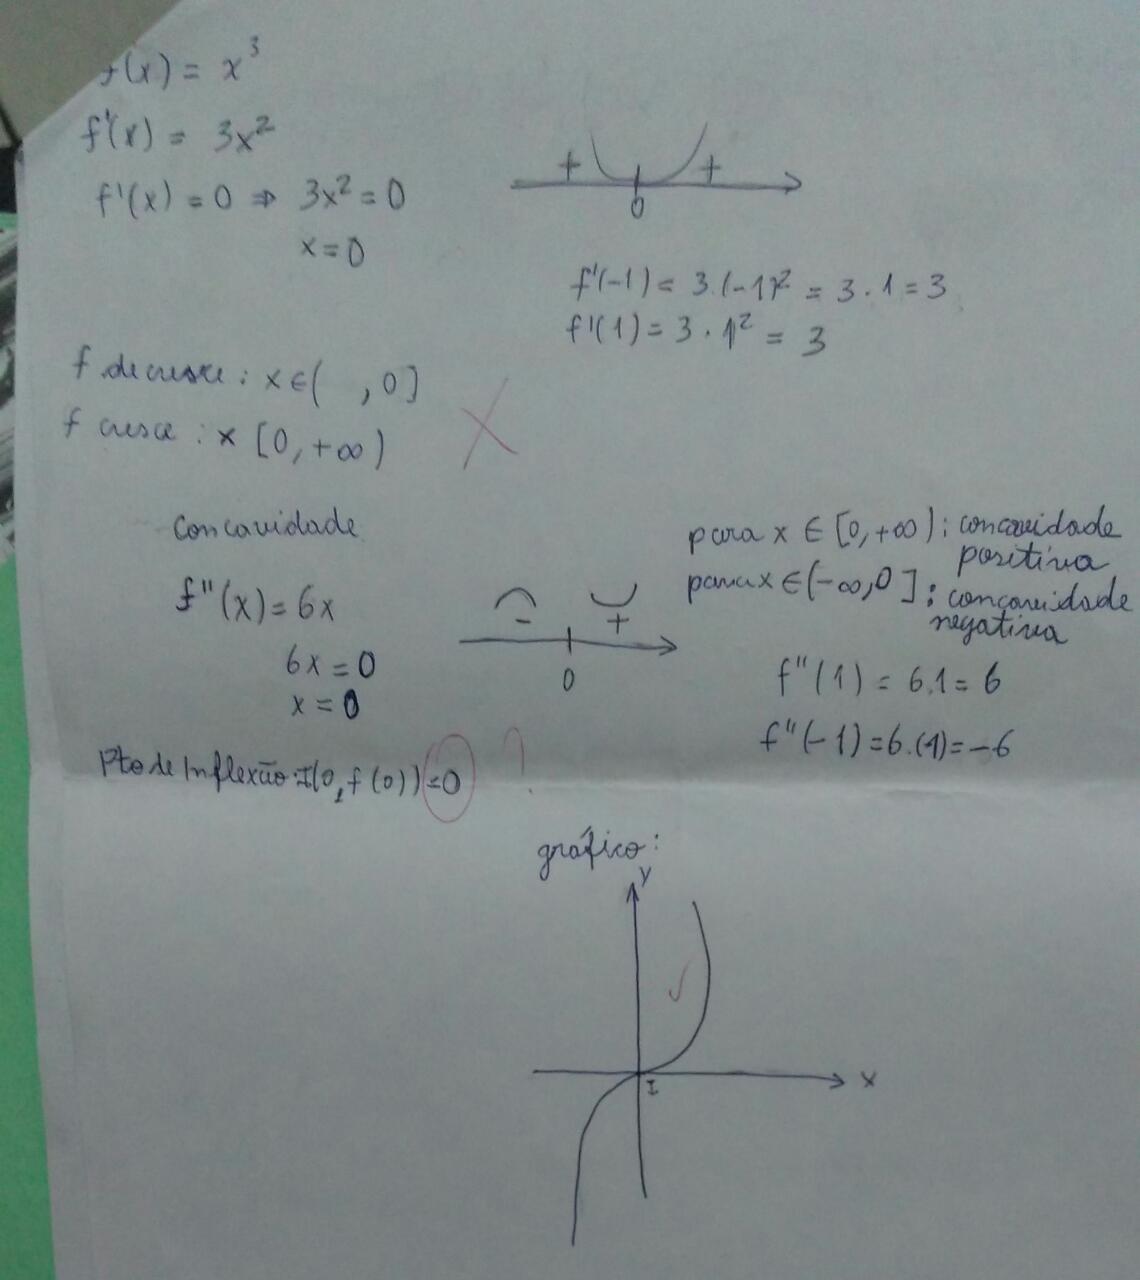 f(x) = x³
f'(x) = 3x²
f'(x) = 0 ⇒ 3x² = 0
x = 0
+ +
0
f'(-1) = 3.(-1)² = 3.1 = 3
f'(1) = 3.1² = 3
f decresce: x ∈ ( , 0]
f cresce: x [0, +∞)
X
Concavidade
f''(x) = 6x
6x = 0
x = 0
- +
0
para x ∈ [0, +∞): concavidade
positiva
para x ∈ (-∞, 0]: concavidade
negativa
f''(1) = 6.1 = 6
f''(-1) = 6.(1) = -6
Pto de Inflexão: I(0, f(0)) = 0 ?
gráfico:
y
I
x